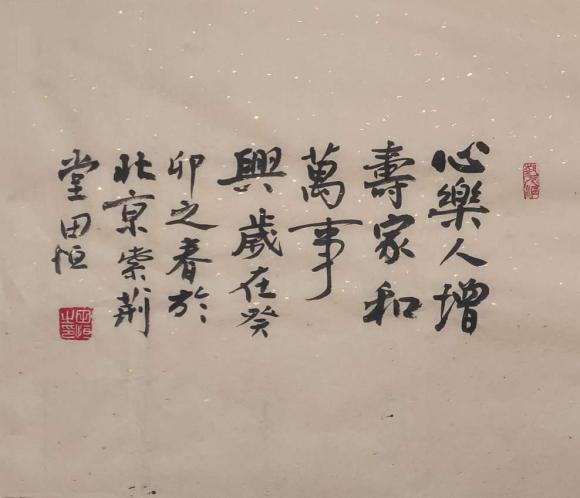 心樂人增
壽家和
萬事
興歲在癸
卯之春於
北京紫荊
堂田恒